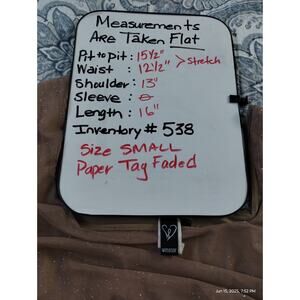 Measurements
Are Taken Flat
Pit to pit: 15½"
Waist: 12½" > Stretch
Shoulder: 13"
Sleeve: ∅
Length: 16"
Inventory # 538
Size SMALL
Paper Tag Faded
Jun 15, 2025, 7:52 PM